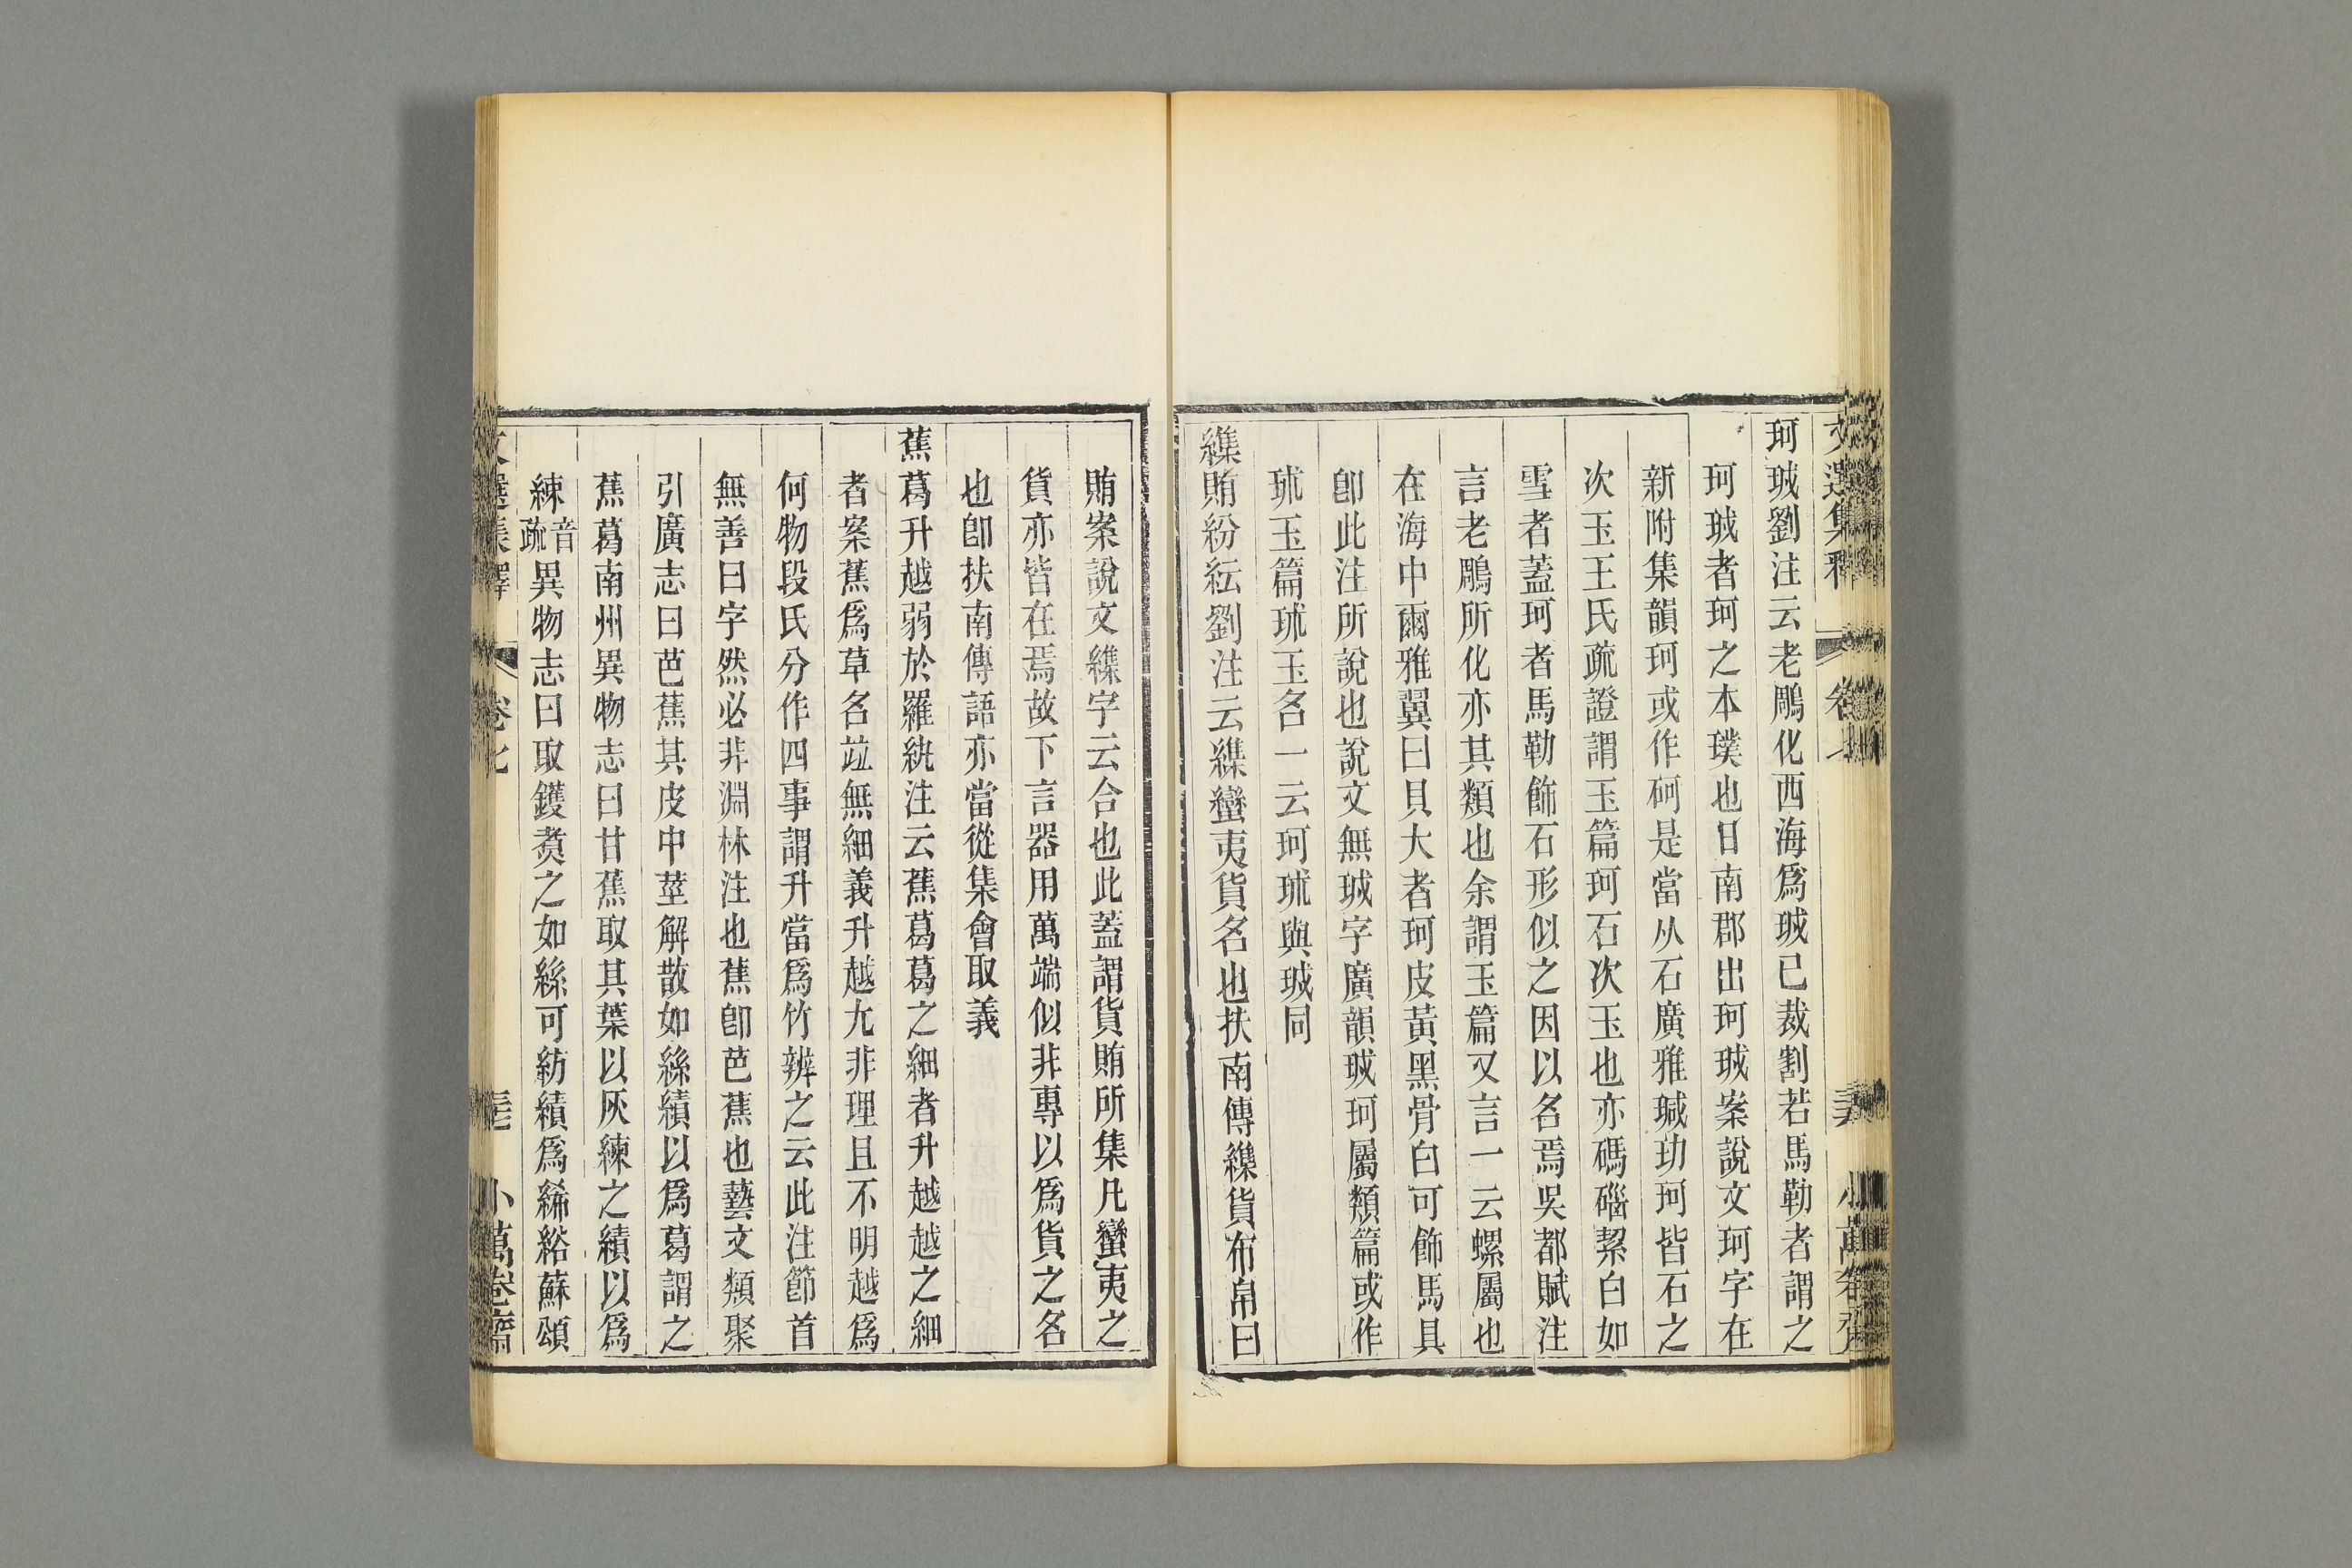 珂㺿劉注云老鵰化西海爲㺿已裁割若馬勒者謂之
珂㺿者珂之本璞也日南郡出珂㺿案說文珂字在
新附集韻珂或作砢是當从石廣雅瑊玏珂皆石之
次玉王氏疏證謂玉篇珂石次玉也亦碼碯絜白如
雪者蓋珂者馬勒飾石形似之因以名焉吳都賦注
言老鵰所化亦其類也余謂玉篇又言一云螺屬也
在海中爾雅翼曰貝大者珂皮黃黑骨白可飾馬具
卽此注所說也說文無㺿字廣韻㺿珂屬類篇或作
珬玉篇珬玉名一云珂珬與㺿同
緤賄紛紜劉注云緤蠻夷貨名也扶南傳緤貨布帛曰
賄案說文緤字云合也此蓋謂貨賄所集凡蠻夷之
貨亦皆在焉故下言器用萬端似非專以爲貨之名
也卽扶南傳語亦當從集會取義
蕉葛升越弱於羅紈注云蕉葛葛之細者升越越之細
者案蕉爲草名竝無細義升越尤非理且不明越爲
何物段氏分作四事謂升當爲竹辨之云此注節首
無善曰字然必非淵林注也蕉卽芭蕉也藝文類聚
引廣志曰芭蕉其皮中莖解散如絲績以爲葛謂之
蕉葛南州異物志曰甘蕉取其葉以灰練之績以爲
練音疏異物志曰取鑊煑之如絲可紡績爲絺綌蘇頌
文選集釋 卷七 小萬卷齋